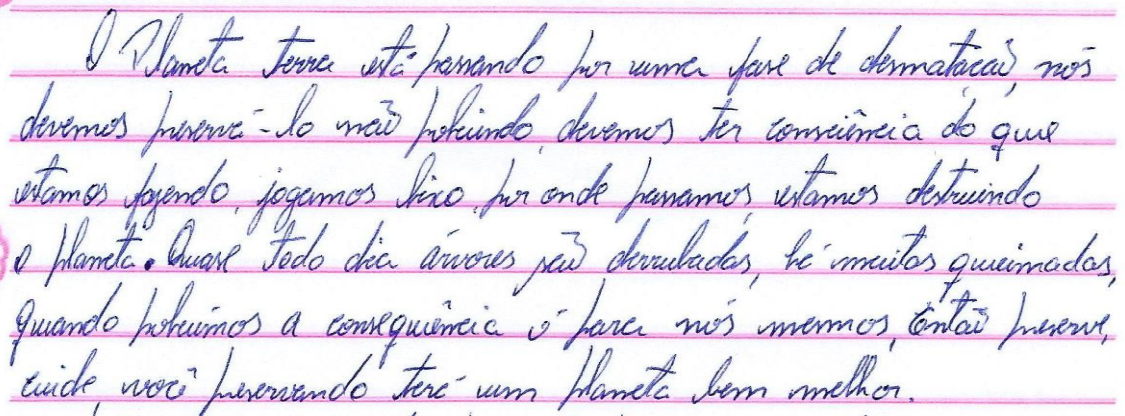 O Planeta terra está passando por uma fase de desmatação, nós
devemos preservá-lo não poluindo, devemos ter consciência do que
estamos fazendo, jogamos lixo, por onde passamos, estamos destruindo
o planeta. Quase todo dia árvores são derrubadas, há muitas queimadas,
quando poluimos a consequência é para nós mesmos, então preserve,
cuide, você preservando terá um planeta bem melhor.